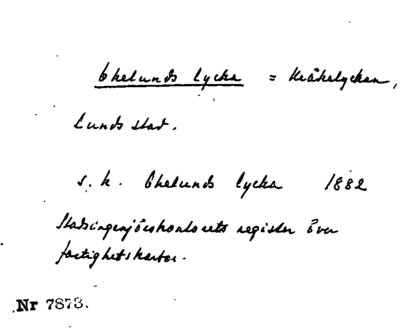 Ekelunds lycka = Kråkelyckan,
Lunds stad.
s. k. Ekelunds lycka 1882
Stadsingenjörskontorets register över
fastighetskartor.
Nr 7873.